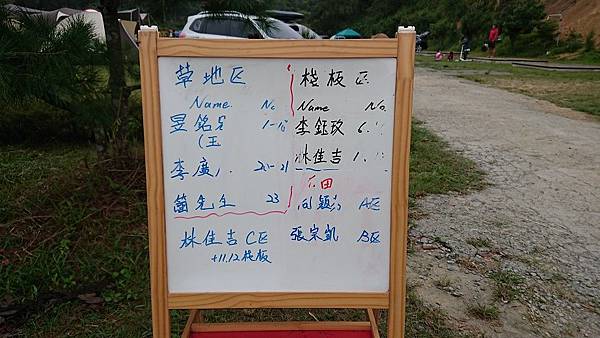 草地区
Name No
昱銘兄 1-10
(王
李廣 20-21
簡先生 23
林佳吉 C区
+11.12棧板
棧板区
Name No.
李鈺玫 6.
林佳吉 1.
田
A区
張宗凱 B区